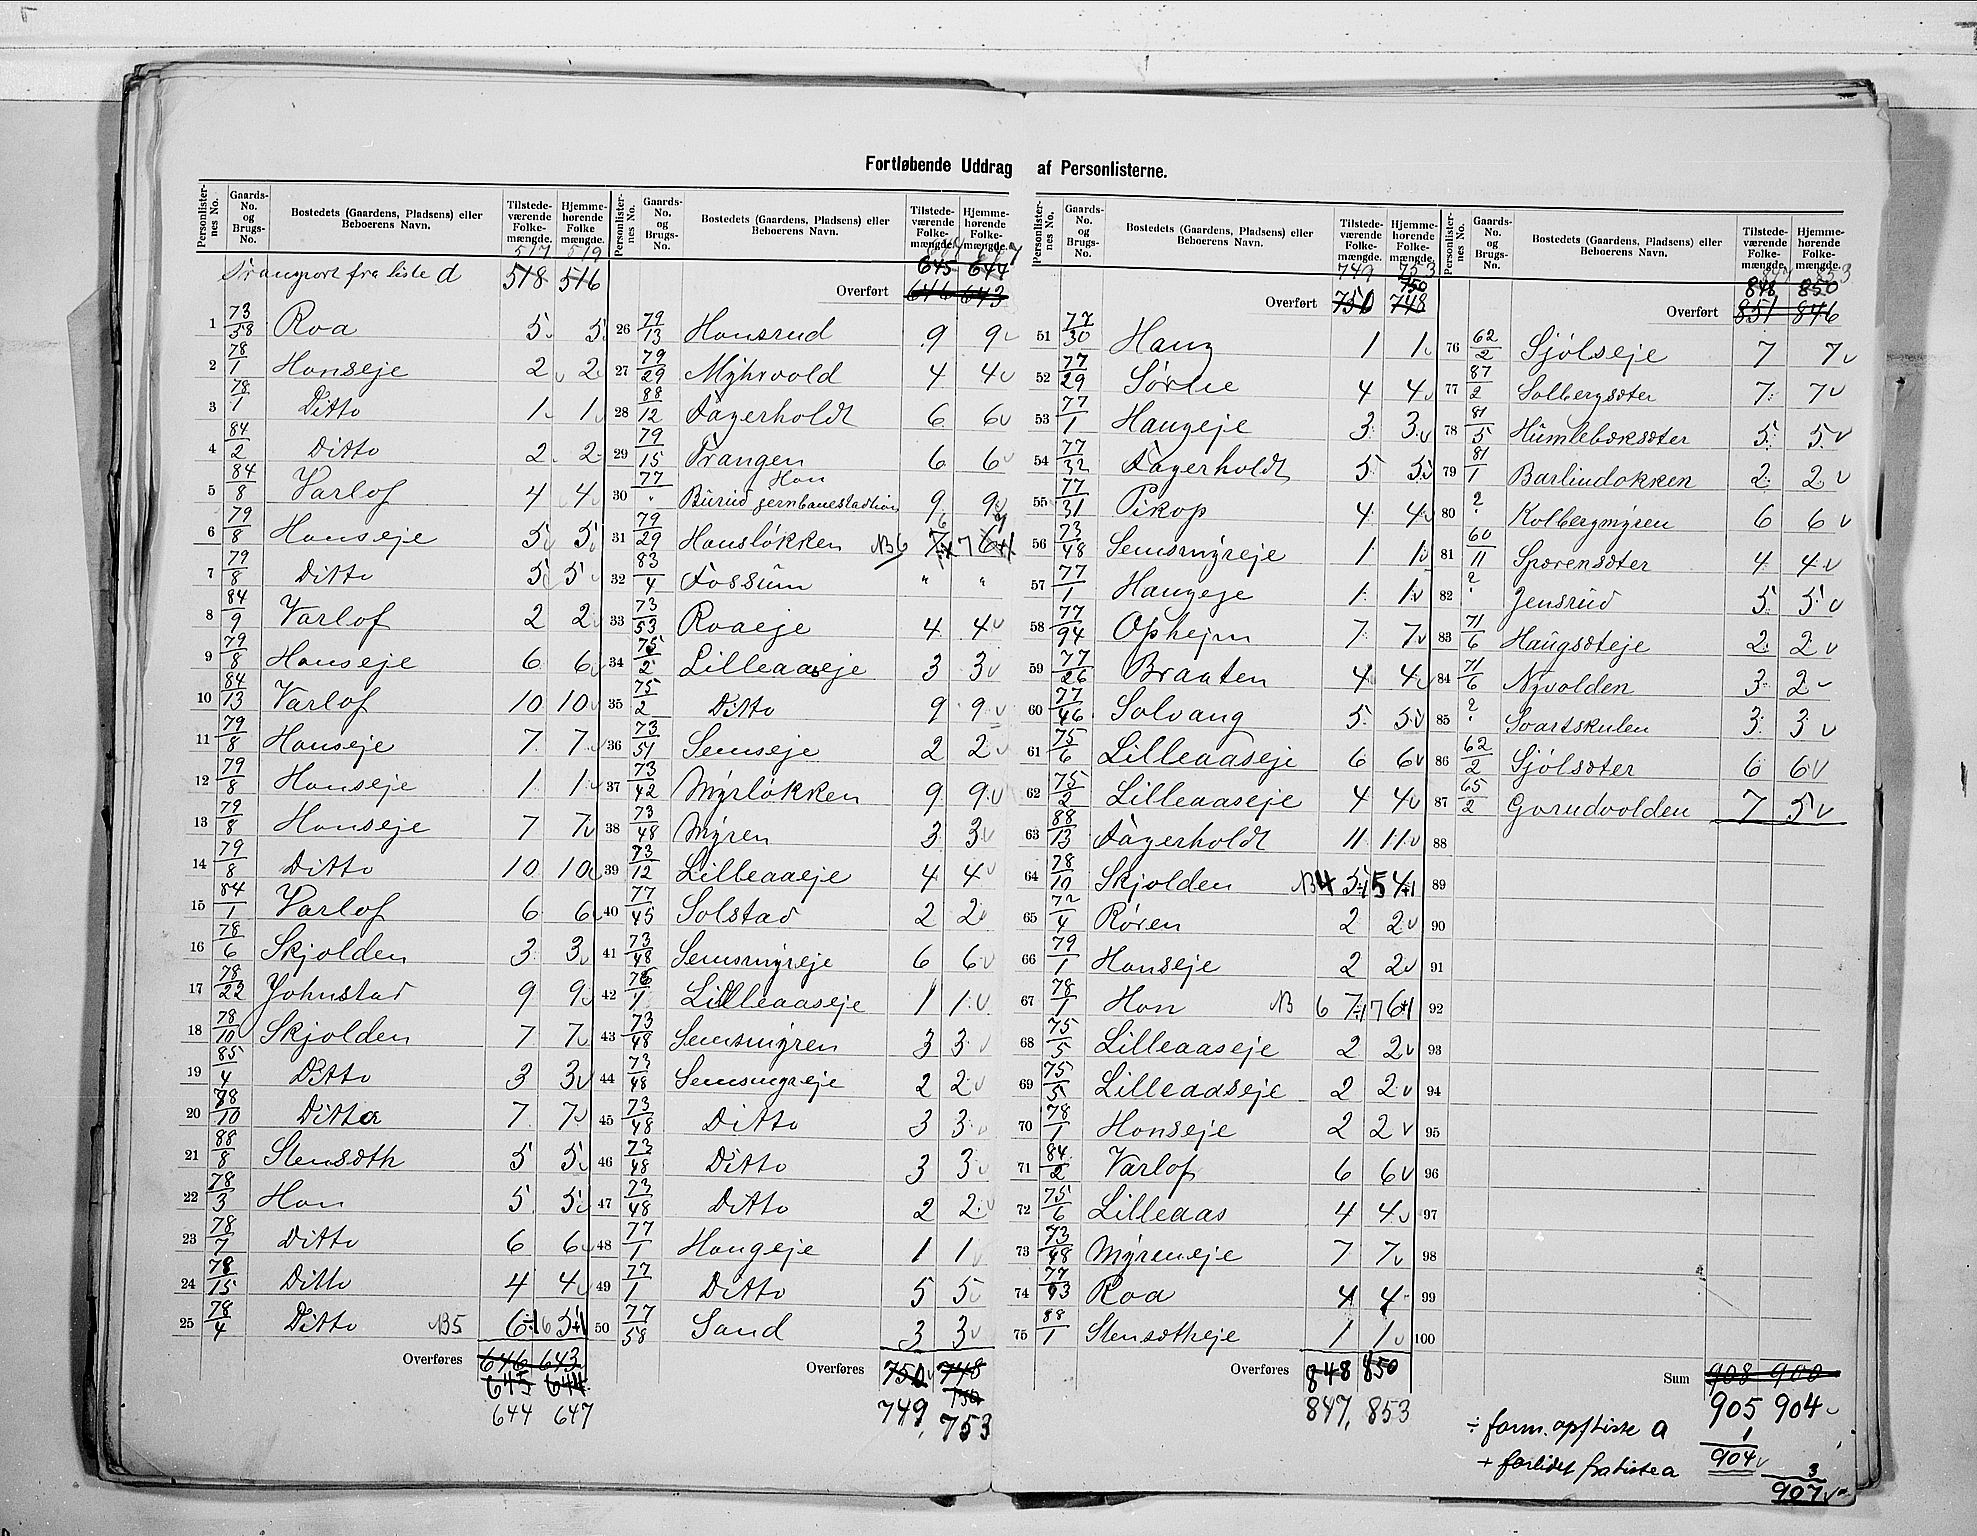 Fortløbende Uddrag af Personlisterne.
Personlister-nes No. | Gaards-No. og Brugs-No. | Bostedets (Gaardens, Pladsens) eller Beboerens Navn. | Tilstede-værende Folke-mængde. | Hjemme-hørende Folke mængde.
517 519
Transport fra liste d 518 516
1 73/58 Roa 5 5
2 78/1 Honseje 2 2
3 78/1 Ditto 1 1
4 84/2 Ditto 2 2
5 84/8 Varlof 4 4
6 79/8 Honseje 5 5
7 79/8 Ditto 5 5
8 84/9 Varlof 2 2
9 79/8 Honseje 6 6
10 84/13 Varlof 10 10
11 79/8 Honseje 7 7
12 79/8 Honseje 1 1
13 79/8 Honseje 7 7
14 79/8 Ditto 10 10
15 84/1 Varlof 6 6
16 78/6 Skjolden 3 3
17 78/22 Johnstad 9 9
18 78/10 Skjolden 7 7
19 85/4 Ditto 3 3
20 78/10 Ditto 7 7
21 88/8 Stensæth 5 5
22 78/3 Hon 5 5
23 78/7 Ditto 6 6
24 78/15 Ditto 4 4
25 78/4 Ditto NB 5 6÷1 6 5+1
Overføres 646 643
645 644
644 647
Personlister-nes No. | Gaards-No. og Brugs-No. | Bostedets (Gaardens, Pladsens) eller Beboerens Navn. | Tilstede-værende Folke-mængde. | Hjemme-hørende Folke-mængde.
645 644
Overført 646 643
26 79/13 Honsrud 9 9
27 79/29 Myhrvold 4 4
28 88/12 Fagerholdt 6 6
29 79/15 Trangen 6 6
Hon
30 77/" Burud jernbanestadtion 9 9
31 79/29 Honsløkken NB 6 7÷1 7 6+1
32 83/4 Fossum " "
33 73/53 Roaeje 4 4
34 75/2 Lilleaaseje 3 3
35 75/2 Ditto 9 9
36 73/51 Semseje 2 2
37 73/42 Myrløkken 9 9
38 73/48 Myren 3 3
39 73/12 Lilleaaeje 4 4
40 77/45 Solstad 2 2
41 73/48 Semsmyreje 6 6
42 75/1 Lilleaaseje 1 1
43 73/48 Semsmyren 3 3
44 73/48 Semsmyreje 2 2
45 73/48 Ditto 3 3
46 73/48 Ditto 3 3
47 73/48 Ditto 2 2
48 77/1 Haugeje 1 1
49 77/1 Ditto 5 5
50 77/58 Sand 3 3
Overføres 750 748
750
749, 753
Personlister-nes No. | Gaards-No. og Brugs-No. | Bostedets (Gaardens, Pladsens) eller Beboerens Navn. | Tilstede-værende Folke-mængde. | Hjemme-hørende Folke-mængde.
749 753
750
Overført 750 748
51 77/30 Haug 1 1
52 77/29 Sørlie 4 4
53 77/1 Haugeje 3 3
54 77/32 Fagerholdt 5 5
55 77/31 Pikop 4 4
56 73/48 Semsmyreje 1 1
57 77/1 Haugeje 1 1
58 77/94 Ophejm 7 7
59 77/26 Braaten 4 4
60 77/46 Solvang 5 5
61 75/6 Lilleaaseje 6 6
62 75/2 Lilleaaseje 4 4
63 88/13 Fagerholdt 11 11
64 78/10 Skjolden NB 4 5÷1 5 4+1
65 72/4 Røren 2 2
66 79/1 Honseje 2 2
67 78/1 Hon NB 6 7÷1 7 6+1
68 75/5 Lilleaaseje 2 2
69 75/5 Lilleaaseje 2 2
70 78/1 Honseje 2 2
71 84/2 Varlof 6 6
72 75/6 Lilleaas 4 4
73 73/48 Myreneje 7 7
74 77/93 Roa 4 4
75 88/1 Stensætheje 1 1
Overføres 848 850
847, 853
Personlister-nes No. | Gaards-No. og Brugs-No. | Bostedets (Gaardens, Pladsens) eller Beboerens Navn. | Tilstede-værende Folke-mængde. | Hjemme-hørende Folke-mængde.
847 853
848 850
Overført 851 846
76 62/2 Sjølseje 7 7
77 87/2 Solbergsæter 7 7
78 81/5 Humlebæksæter 5 5
79 81/1 Barlindokken 2 2
80 ? Kolbergmyren 6 6
81 60/11 Sporensæter 4 4
82 ? Jensrud 5 5
83 71/6 Haugsæteje 2 2
84 71/6 Nyvolden 3 2
85 ? Svartskulen 3 3
86 62/2 Sjølsæter 6 6
87 65/2 Gorudvolden 7 5
88
89
90
91
92
93
94
95
96
97
98
99
100
Sum 908 900
905 904
÷ form. opf liste a 1
904
+ forlidet fra liste a 3
907